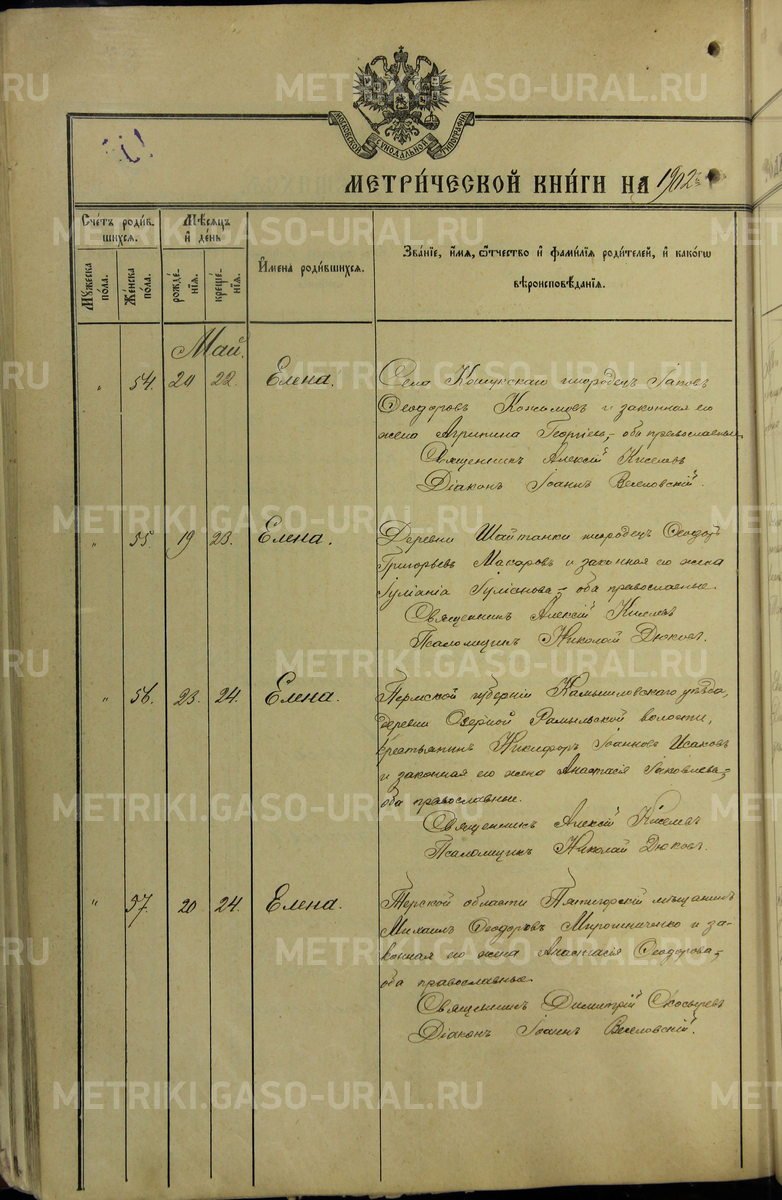 МОСКОВСКОЙ СѴНОДАЛЬНОЙ ТИПОГРАФІИ
МЕТРИ́ЧЕСКОЙ КНИ́ГИ НА 1902
Счетъ роди́вшихся.
Му́жеска по́ла.
Же́нска по́ла.
Мѣ́сяцъ и҆ де́нь
рожде́нїѧ.
креще́нїѧ.
И҆мена̀ роди́вшихсѧ.
Зва́нїе, и҆́мѧ, ѻ҆́тчество и҆ фами́лїѧ роди́телей, и҆ како́гѡ
вѣроисповѣ́данїѧ.
Май.
" 54. 20 22. Елена.
Села Кошукскаго инородецъ Іаковъ
Ѳеодоровъ и законная его
жена Агрипина Георгіева, – оба православные.
Священникъ Алексій Киселевъ
Діаконъ Іоаннъ Веселовскій.
" 55. 19 23. Елена.
Деревни Шайтанки инородецъ Ѳеодотъ
Григорьевъ Макаровъ и законная его жена
Іуліанія Іуліанова – оба православные.
Священникъ Алексій Киселевъ
Псаломщикъ Николай Дюковъ.
" 56. 23. 24. Елена.
Пермской губерніи Камышловскаго уѣзда,
деревни Озерной Рамыльской волости,
крестьянинъ Никифоръ Іоанновъ Исаковъ
и законная его жена Анастасія Іаковлева –
оба православные.
Священникъ Алексій Киселевъ
Псаломщикъ Николай Дюковъ.
" 57. 20 24. Елена.
Терской области Пятигорскій мѣщанинъ
Михаилъ Ѳеодоровъ Мирошниченко и за-
конная его жена Анастасія Ѳеодорова –
оба православные.
Священникъ Димитрій
Діаконъ Іоаннъ Веселовскій.
METRIKI.GASO-URAL.RU